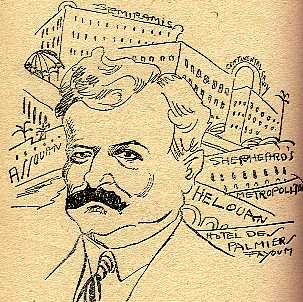 SEMIRAMIS
CONTINENTAL
ASSOUAN
SHEPHEARD'S
METROPOLITAN
HELOUAN
HOTEL DES
PALMIERS
FAYOUM